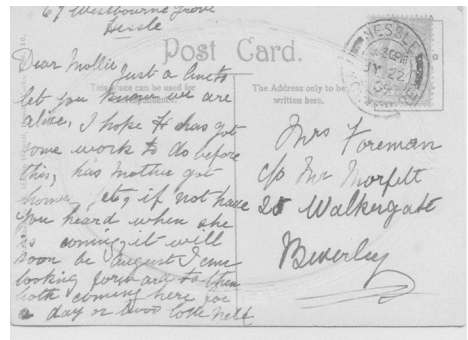 67 Westbourne Grove
Hessle
Post Card.
This space can be used for
correspondence.
The Address only to be
written here.
HESSLE
JY 22
Dear Mollie
Just a line to
let you know we are
alive, I hope H has got
some work to do before
this, has Mother got
home yet, if not have
you heard when she
is coming, it will
soon be August I am
looking forward to them
both coming here for
a day or two love Nell
Mrs Foreman
c/o Mr Morfett
25 Walkergate
Beverley